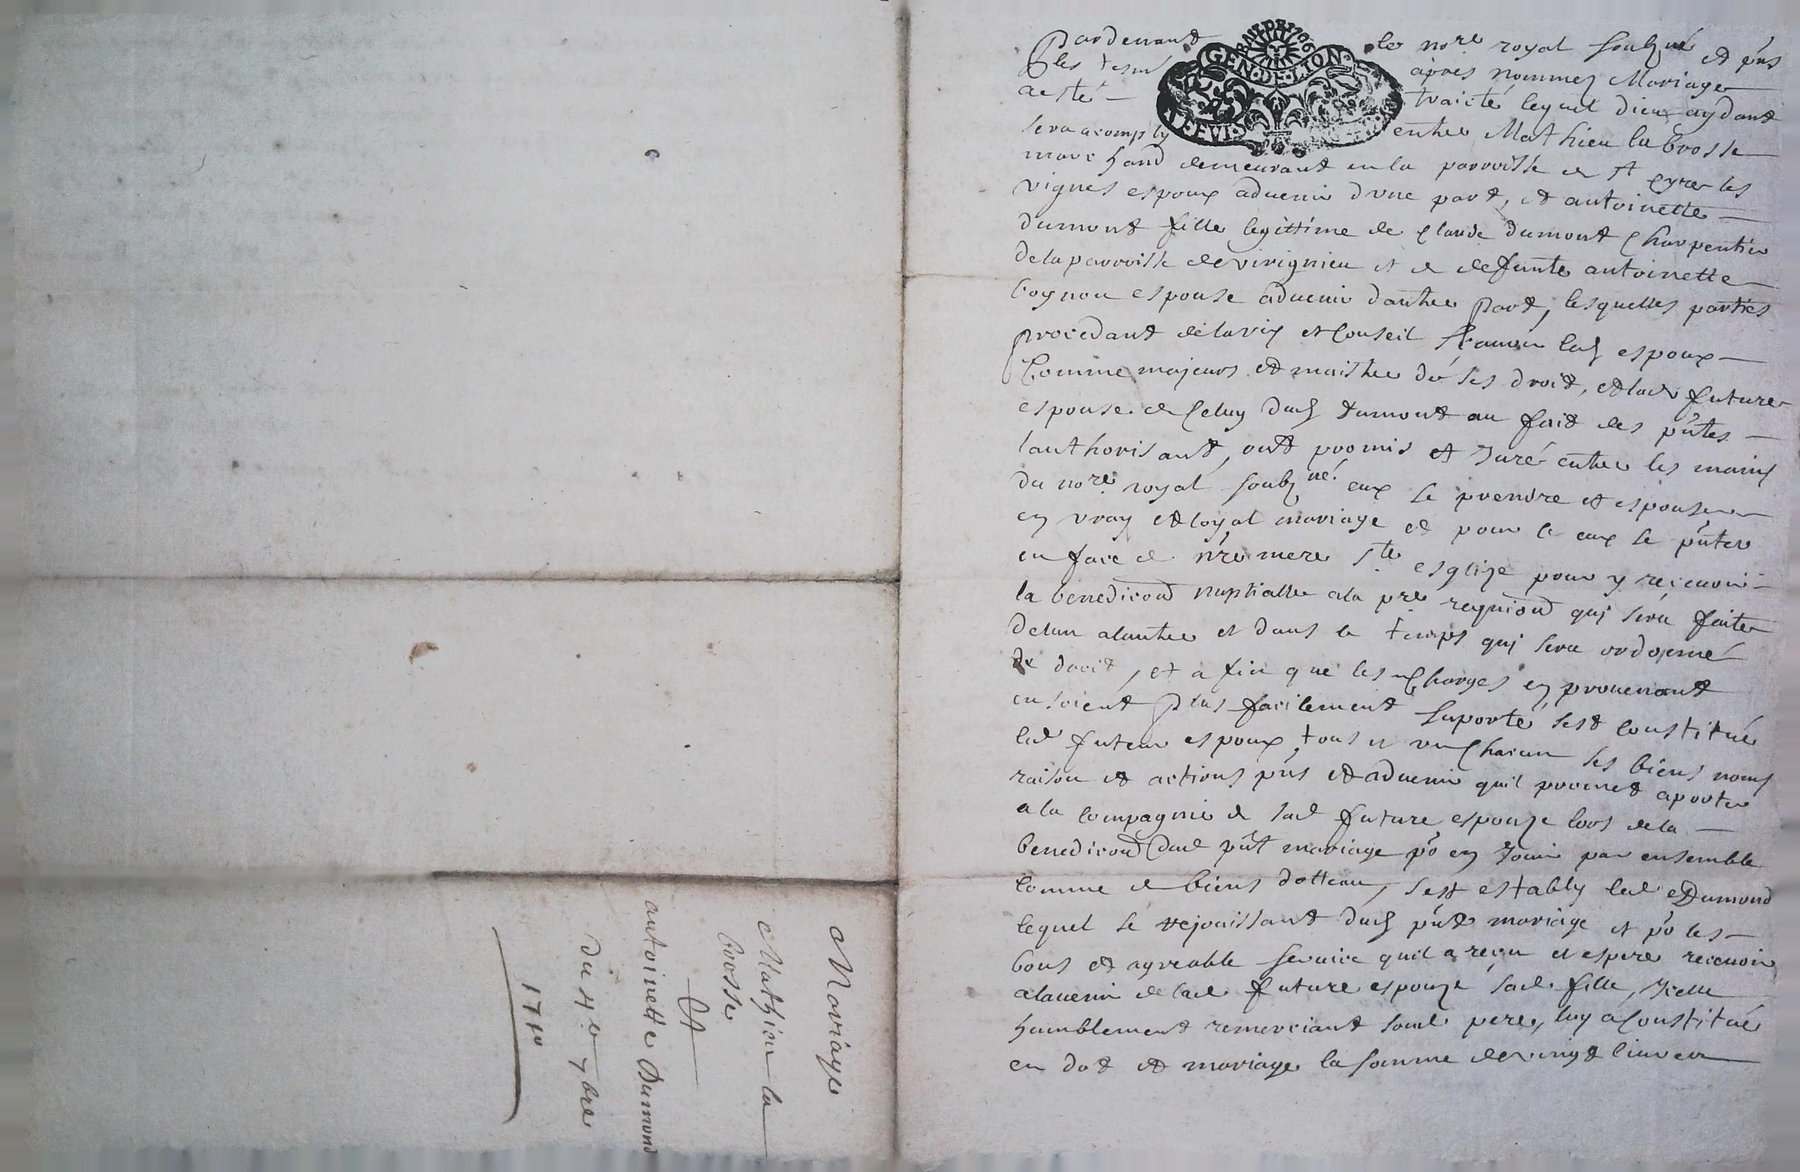 Mariage
Mathieu la
brosse
Et
antoinette Dumond
du 4e 7bre
1710
GEN·DE·LION
Pardevant le nore royal soubz né et pńs
les tesms apres nommez Mariage
a esté traicté lequel dieu aydant
sera acomply entre Mathieu la brosse
marchand demeurant en la parroisse de st Cyre les
vignes espoux advenir dvne part, et antoinette
dumont fille legittime de Claude dumont Charpentier
de la parroisse de virignieu et de defunte antoinette
espouse advenir dautre Part, lesquelles parties
procedant de lavis et Conseil scavoir led espoux
Comme majeurs et maistre de ses droit, et lad future
espouse de Celuy dud dumont au fait des pńtes
lauthorisant, ont promis et Juré entre les mains
du nore royal soubz né eux se prendre et espouser
en vray et loyal mariage et pour ce eux se pńter
en face de nre mere ste esglize pour y recevoir
la benediĉon nuptialle a la pre requiŝion quj sera faite
de lun a lautre et dans le temps quj sera ordonné
de droit, et a fin que les Charges en provenant
en soient Plus facilement suporté sest constitué
led futeur espoux, tous et vn Chacun ses biens noms
raison et actions pńs et advenir quil promet aporter
a la compagnie de sad future espouze lors de la
benediĉon dud pńt mariage po en Jouir par ensemble
comme de biens dottaux, sest estably led Dumond
lequel se rejouissant dud pńt mariage et po les
bons et agreable service quil a reçu et espere recevoir
a lavenir de lad future espouze sad fille, Icelle
humblement remerciant sond pere, luy a Constitué
en dot et mariage la somme de vingt